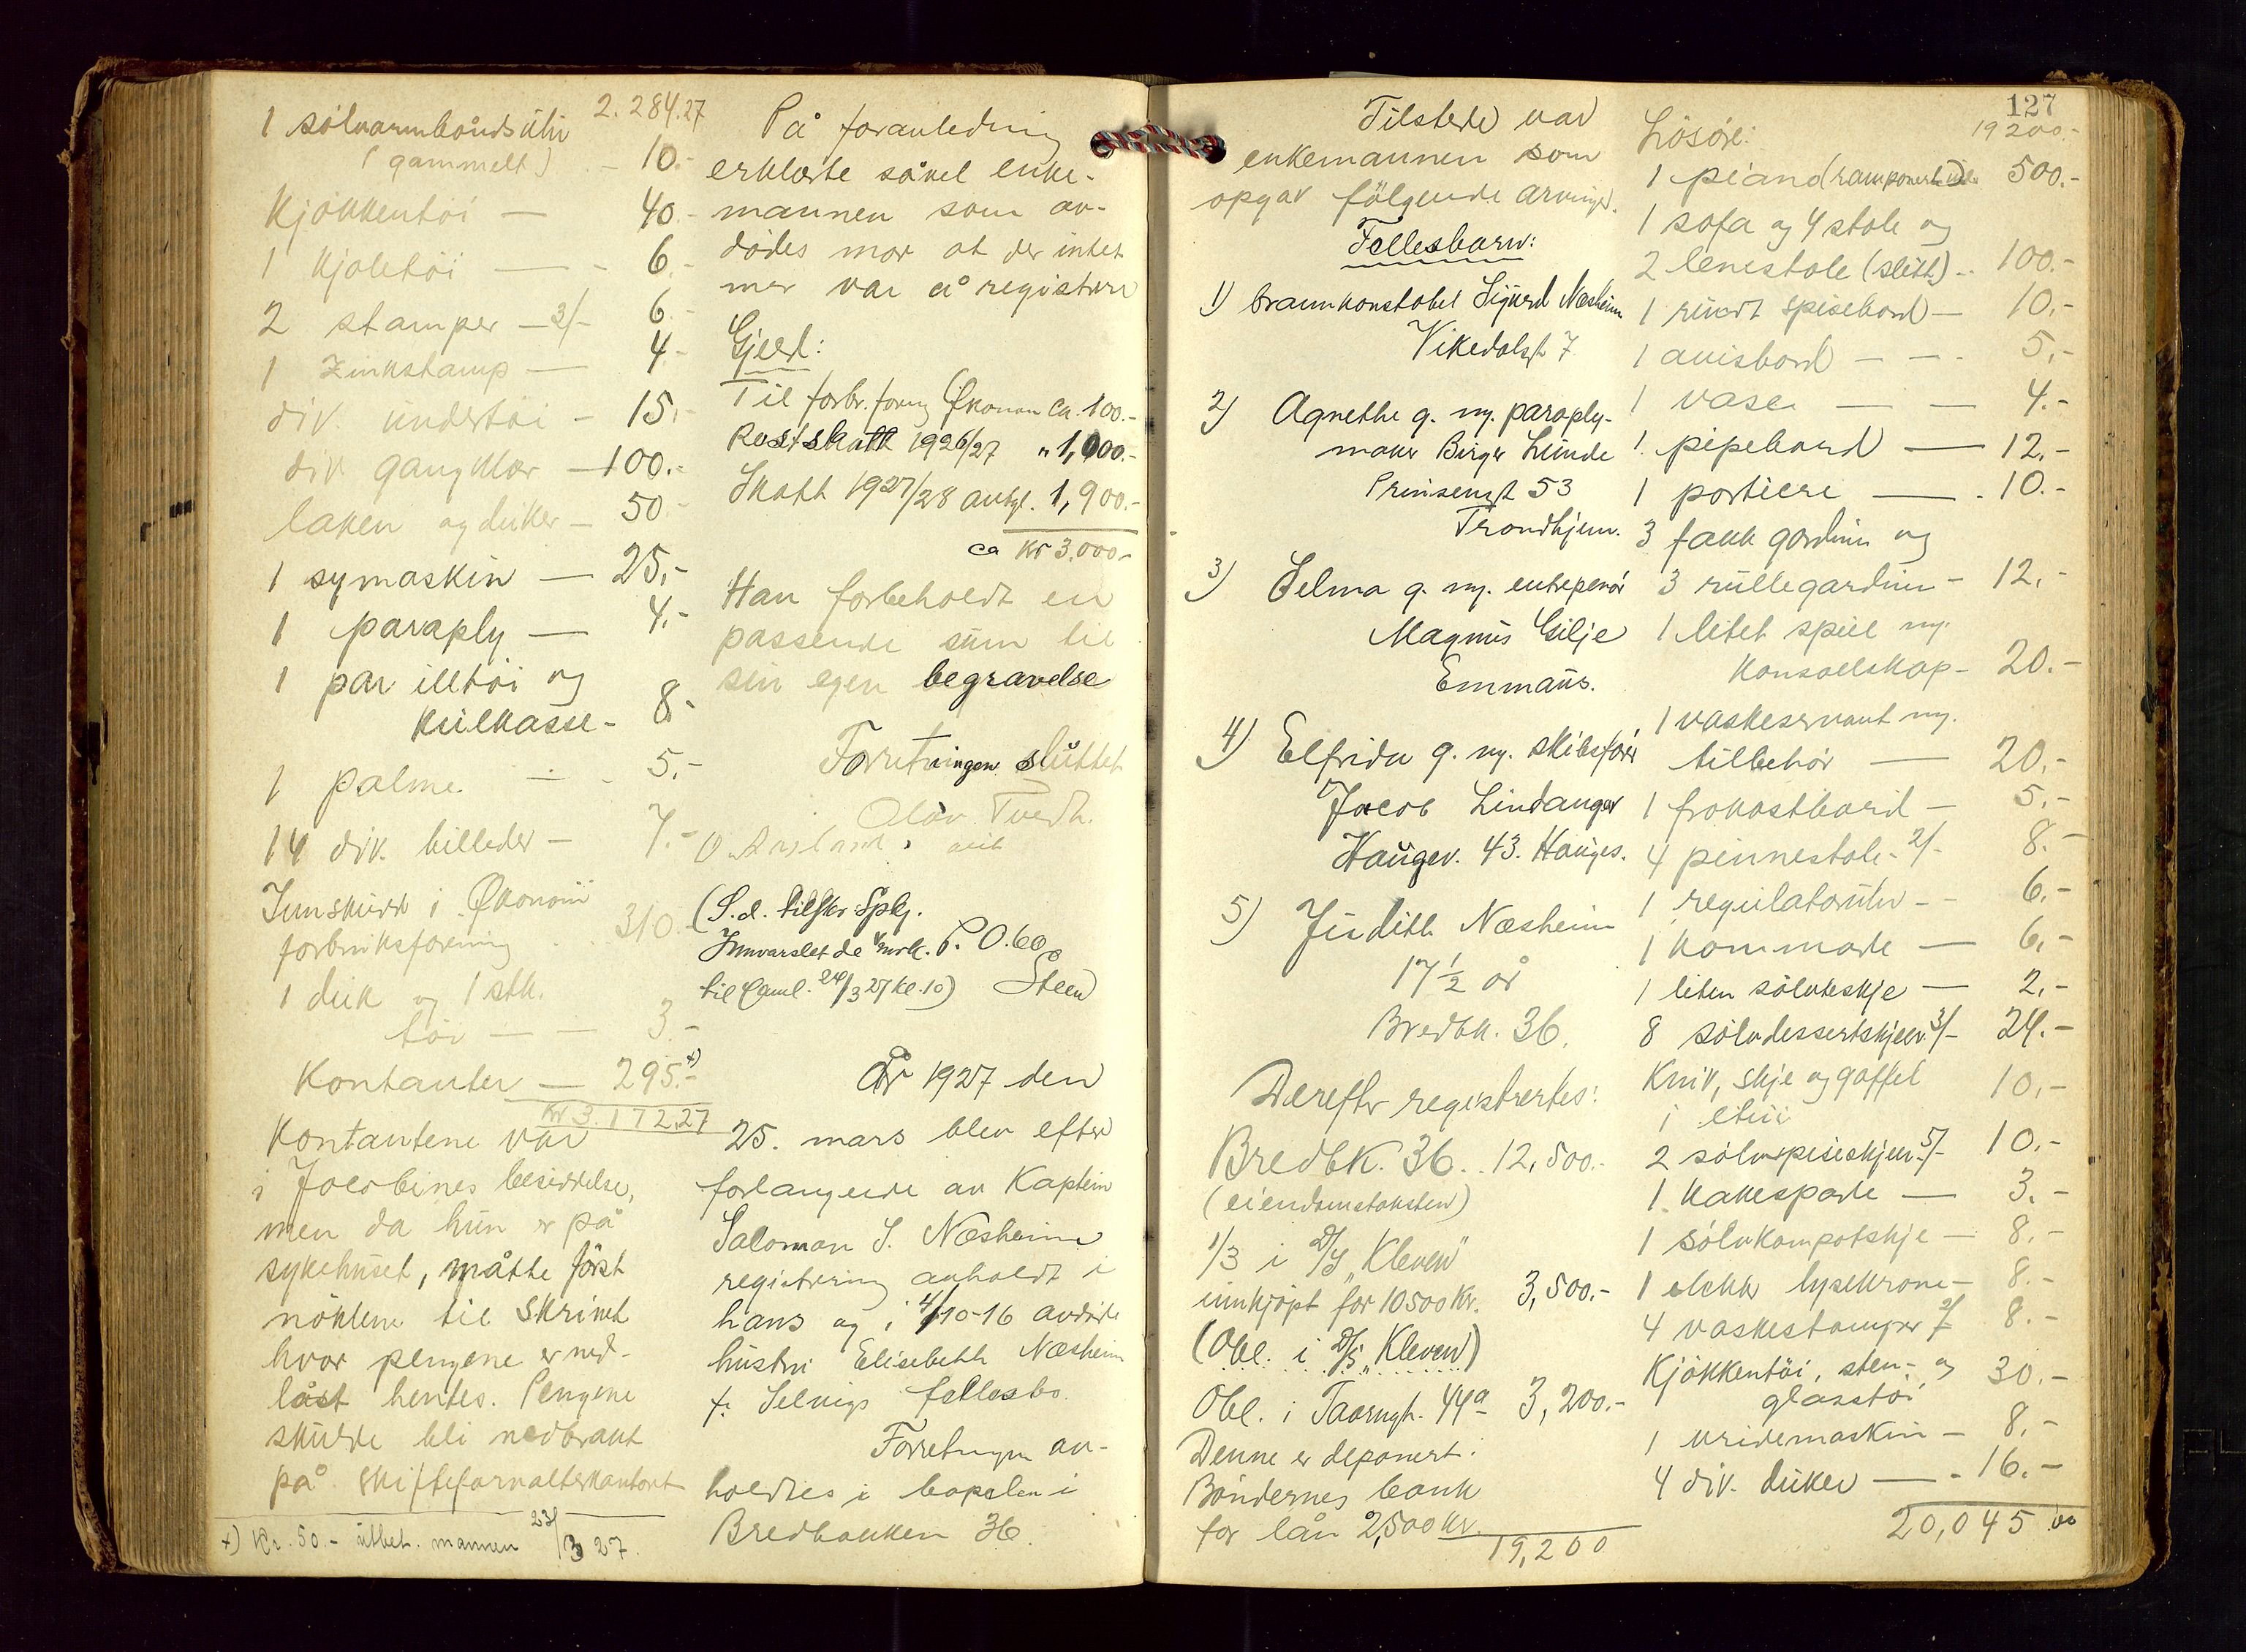 2.284.27
1 sölvarmbåndsuhr
(gammelt) - 10.-
Kjökkentöi - 40.-
1 Kjoletöi - - 6.-
2 stamper - 3/- 6.-
1 Zinkstamp - 4.-
div. undertöi - 15.-
div. gangklær - 100.-
laken og duker - 50.-
1 symaskin - 25,-
1 paraply - 4.-
1 par illtöi og
kulkasse - 8.-
1 palme - - 5.-
14 div. billeder - 7.-
Innskudd i Økonomi
forbruksforening . . 310.-
1 duk og 1 stk.
töi - - 3.-
Kontanter - 295.- x)
Kr 3.172.27
Kontantene var
i Jocobines besiddelse,
men da hun er på
sykehuset, måtte först
nöklene til skrinet
hvor pengene er ned-
låst hentes. Pengene
skulde bli nedbrakt
på skifteforvalterkontoret
x) Kr. 50.- utbet. mannen 23/3 27.
På foranledning
erklærte såvel enke-
mannen som av-
dödes mor at der intet
mer var å registrere
Gjeld:
Til forbr. foren Økonom ca. 100.-
Restskatt 1926/27 " 1,000.-
Skatt 1927/28 antgl. 1,900.-
ca Kr 3.000-
Han forbeholdt en
passende sum til
sin egen begravelse
Forretningen sluttet
Olav Tvedt.
(S.d. tilskr. Spbg.
Innvarslet de v. mrk. P. O. 60
til Gaml. 24/3 27 kl. 10) Steen
År 1927 den
25. mars blev efter
forlangende av Kaptein
Salomon S. Næsheim
registrering avholdt i
hans og i 4/10-16 avdöde
hustru Elisebeth Næsheim
f. Selvigs fellesbo.
Forretningen av-
holdtes i bopelen i
Bredbakken 36.
Tilstede var
enkemannen som
opgav fölgende arvinger.
Fellesbarn:
1) brannkonstabel Sigurd Næsheim
Vikedalsgt 7
2) Agnethe g. m. paraply-
maker Birger Lunde
Prinsensgt 53
Trondhjem.
3) Selma g. m. entreprenör
Magnus Gilje
Emmaus.
4) Elfrida g. m. skibsförer
Jacob Lindanger
Haugev. 43. Hauges.
5) Judith Næsheim
17 1/2 år
Bredbk. 36.
Derefter registrertes:
Bredbk. 36. . 12,500.-
(eiendomstaksten)
1/3 i D/S "Kleven"
innkjöpt for 10500 Kr. 3,500.-
(Obl. i D/S "Kleven")
Obl. i Taarngt. 44a 3,200.-
Denne er deponert i
Böndernes bank
for lån 2,500 Kr.
19,200
127
Lösöre: 19200.-
1 piano (ramponert) 500.-
1 sofa og 4 stole og
2 lenestole (slitt) - 100.-
1 rundt spisebord - 10.-
1 avisbord - - - 5,-
1 vase - - 4.-
1 pipebord - 12.-
1 portiere - 10.-
3 fakk gardiner og
3 rullegardiner - 12.-
1 litet speil m.
Konsollskap - 20.-
1 vaskeservant m.
tilbehör - 20.-
1 frokostbord - 5.-
4 pinnestole - 2/- 8.-
1 regulatoruhr - - 6.-
1 kommode - 6.-
1 liten sölvteskje - 2.-
8 sölvdessertskjeer 3/- 24.-
Kniv, skje og gaffel
i etui 10.-
2 sölvspiseskjeer 5/- 10.-
1 kakespade - 3.-
1 sölvkompotskje - 8.-
1 elektr lysekrone - 8.-
4 vaskestamper 2/- 8.-
Kjökkentöi, sten- og
glasstöi 30.-
1 vridemaskin - 8.-
4 div. duker - - 16.-
20,045 00